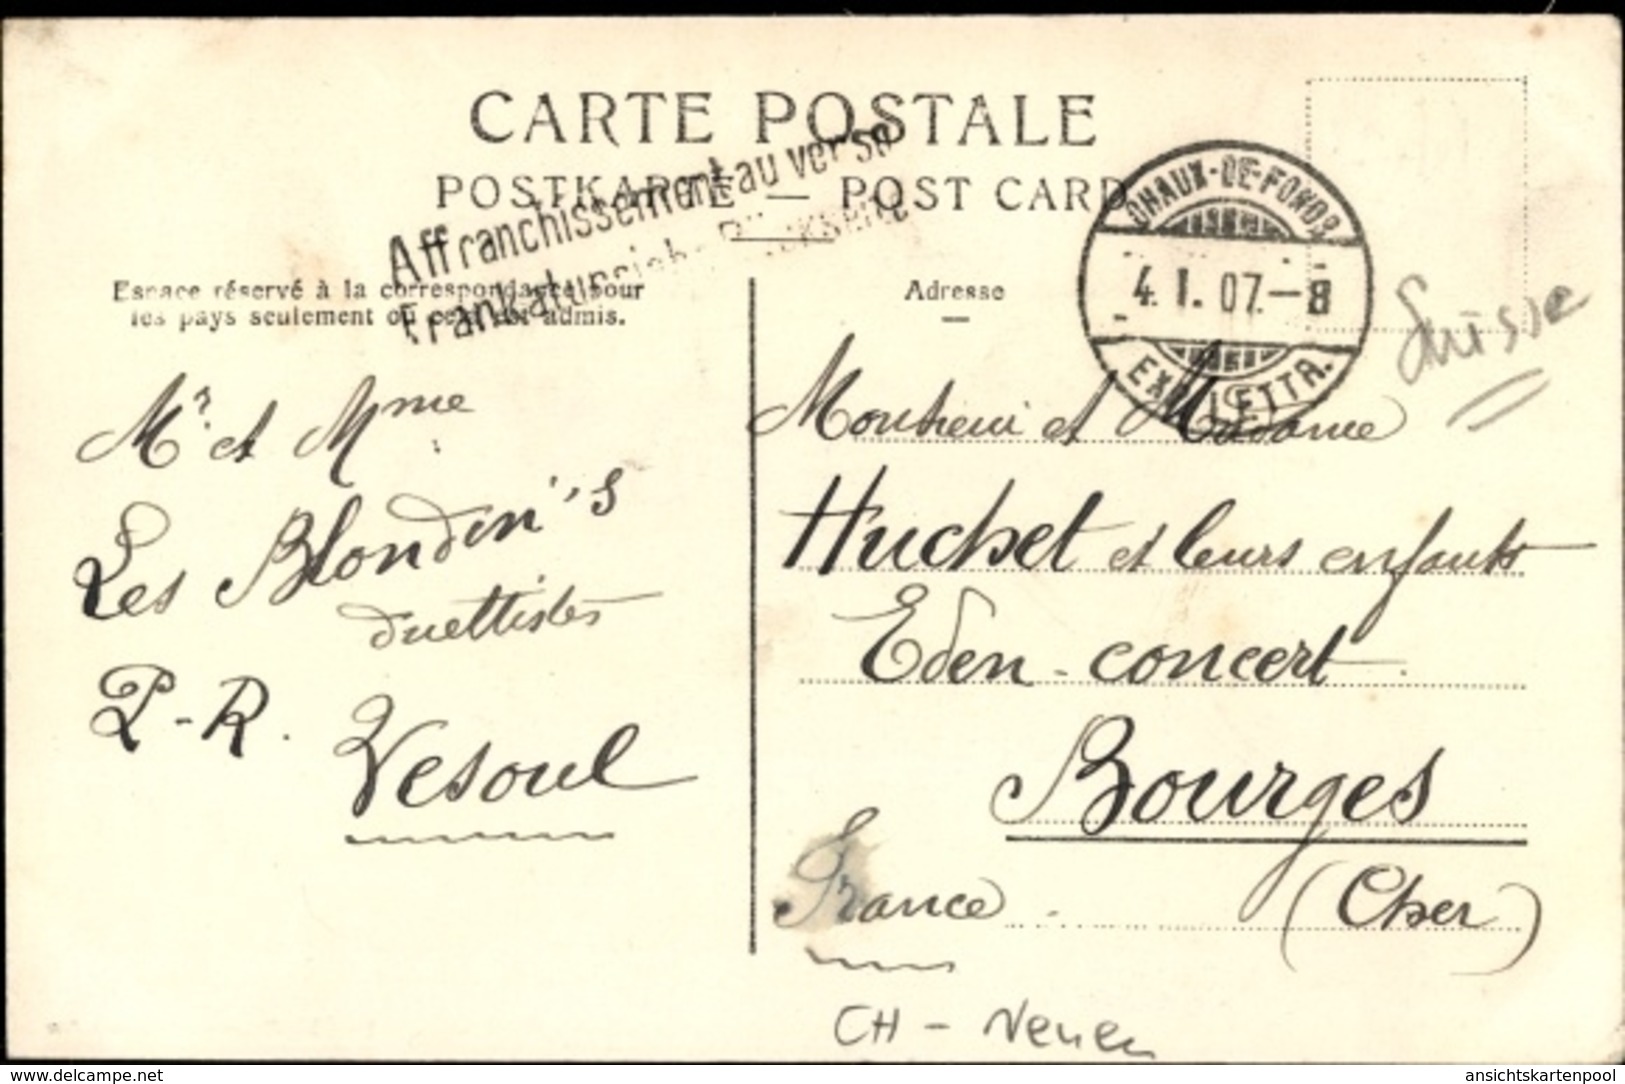 CARTE POSTALE
POSTKARTE — POST CARD
Affranchissement au verso
Frankatur siehe Rückseite
Espace réservé à la correspondance pour
les pays seulement où cela est admis.
Adresse
CHAUX-DE-FONDS
4. I. 07.–8
EXP. LETTR.
Suisse
Mr. et Mme
Les Blondin's
duettistes
P-R.
Vesoul
Monsieur et Madame
Huchet et leurs enfants
Eden-concert
Bourges
France (Cher)
CH –
www.delcampe.net
ansichtskartenpool